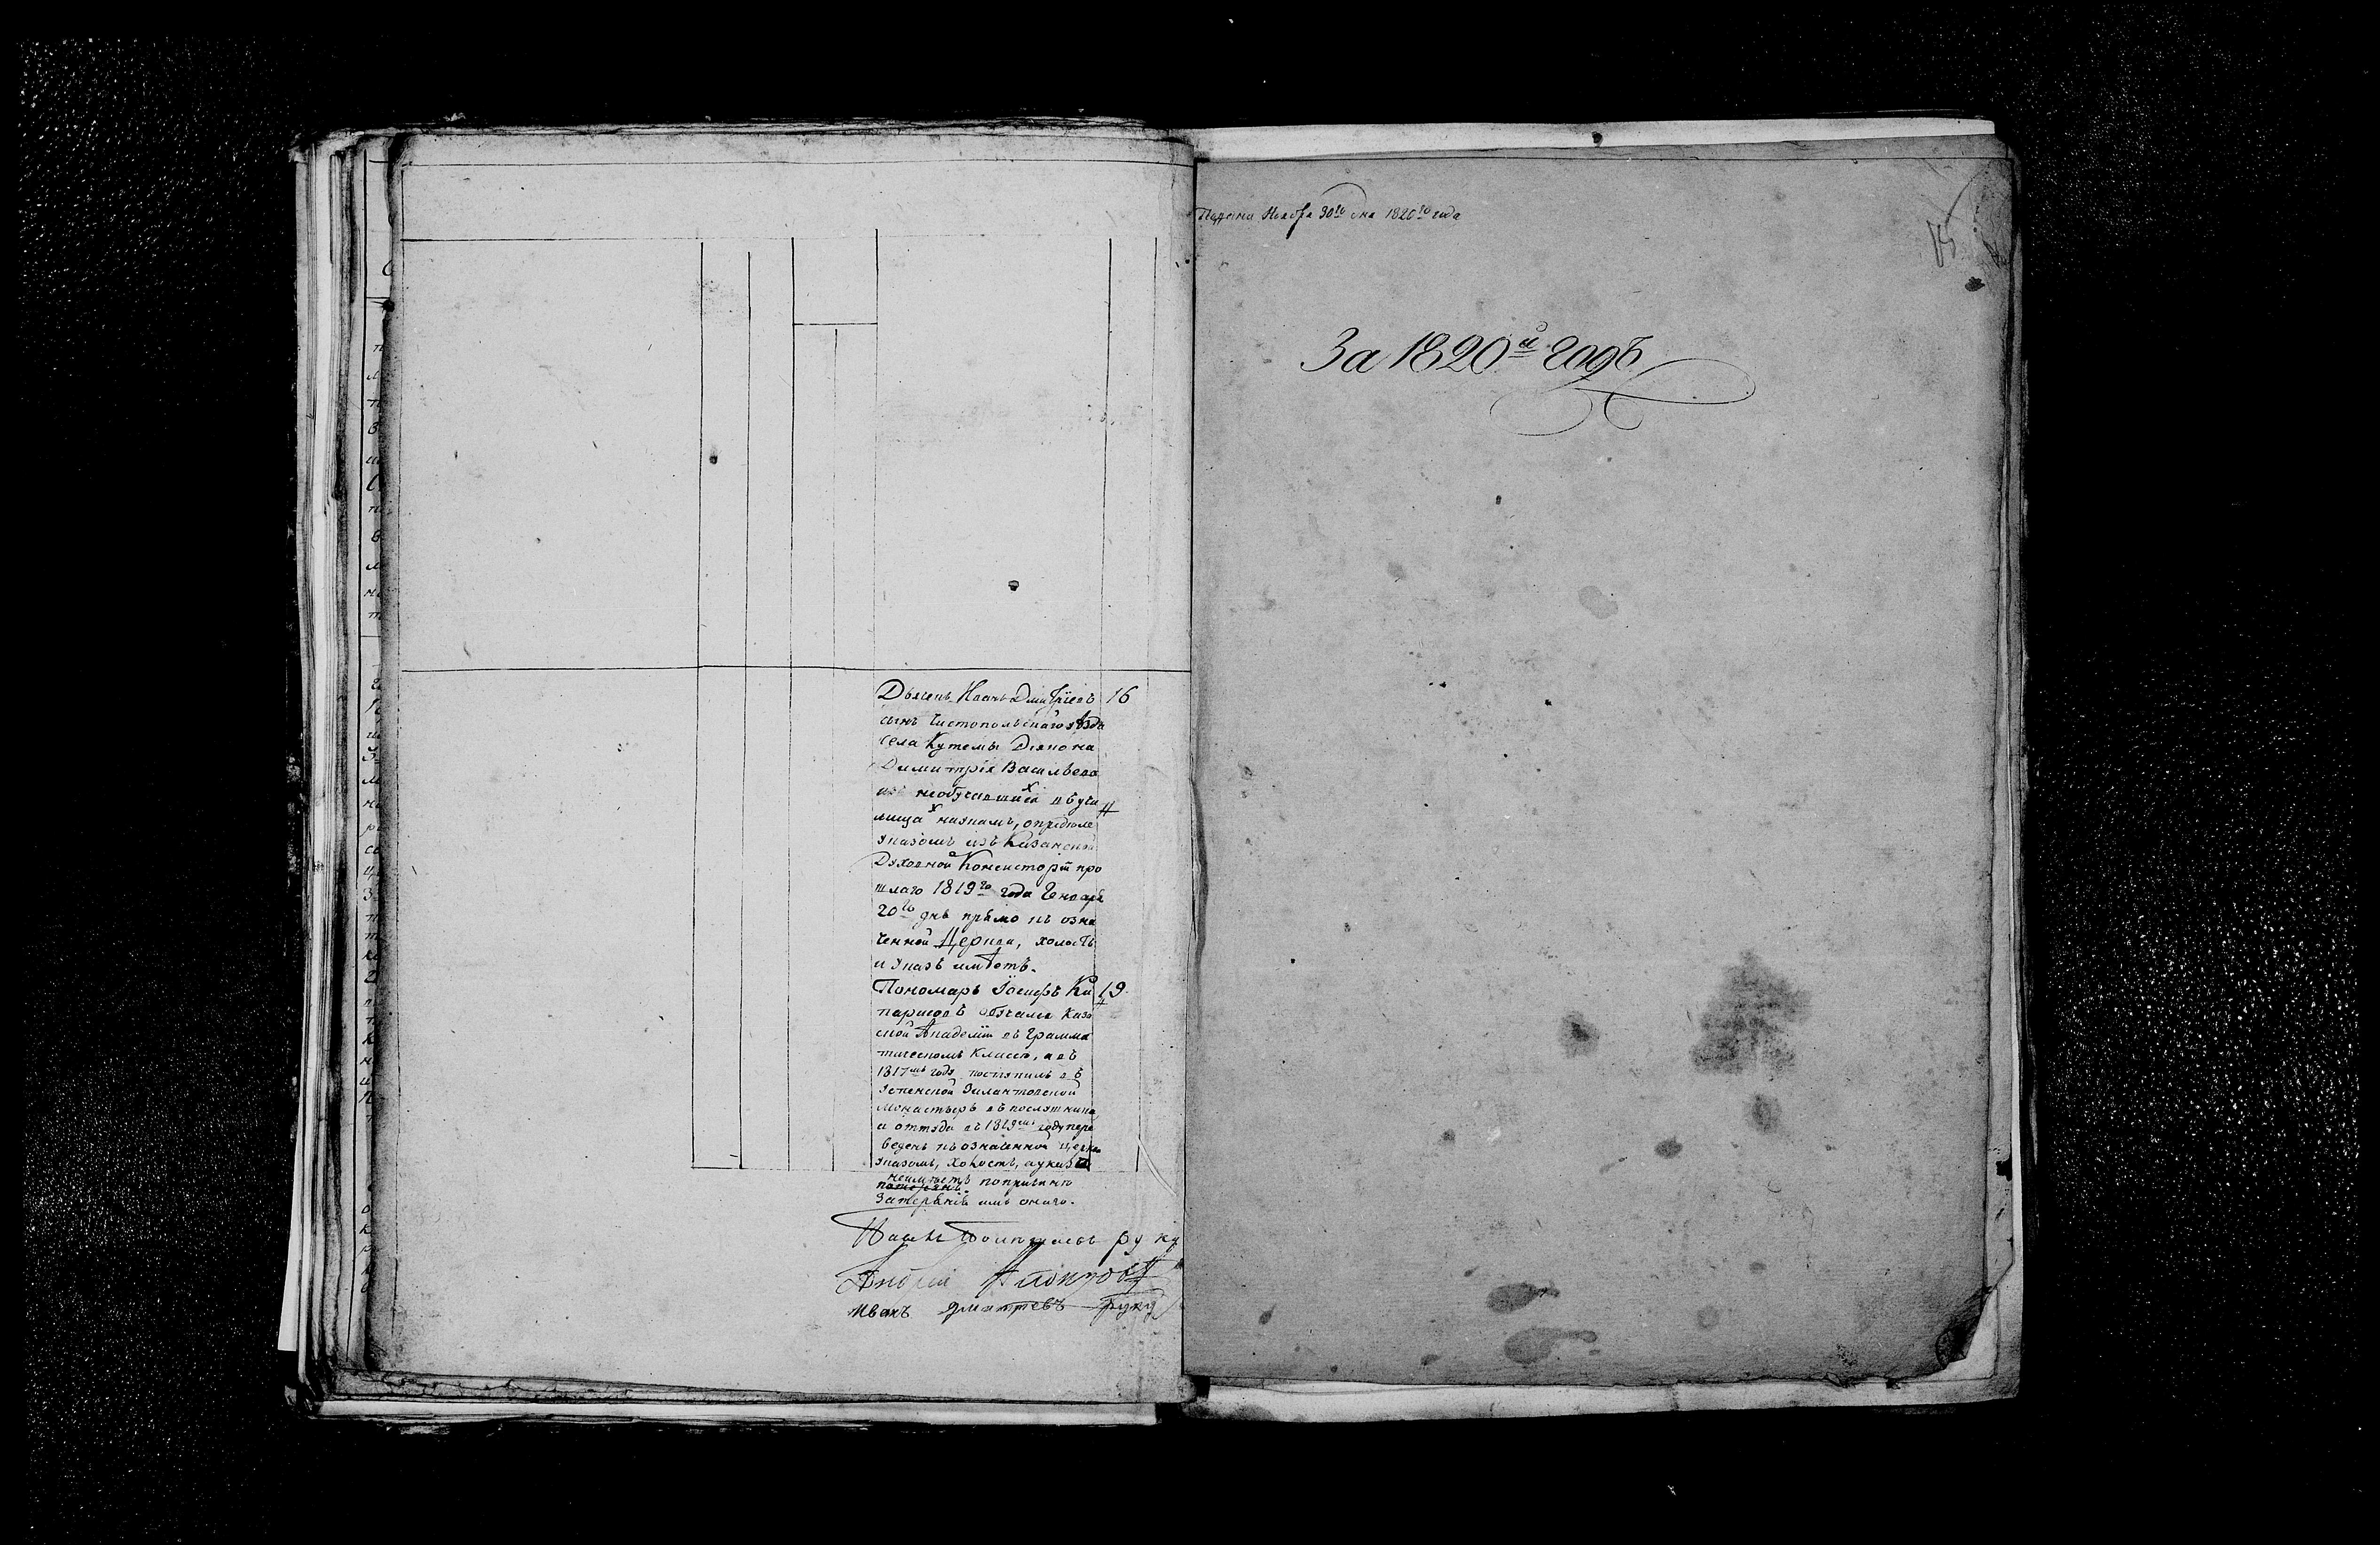 Дьячекъ Иванъ Дмитріевъ 16
сынъ Чистопольскаго уѣзда
села Кутемы Діакона
Димитрія Васильева
изъ необучавшихся въ учи
лищахъ наукамъ, опредѣле
указомъ изъ Казанской
Духовной Консисторіи про
шлаго 1819го года Генваря
20го дня прямо къ озна
ченной Церкви, холостъ
и указъ имѣетъ.
Пономарь Іосифъ Ки 19
парисовъ обучался Каза
ской Академіи въ Грамма
тическомъ Классѣ, а въ
1817мъ году поступилъ въ
Успенской Зилантовской
монастырь въ послушники
и оттуда въ 1819мъ году пере
веденъ къ означенной церкви
указомъ, холостъ, а указа
неимѣетъ попричинѣ
затерянія имъ онаго.
руку
Андрей
Иванъ дмитревъ руку
Подана Ноября 30го дня 1820го года
За 1820й годъ